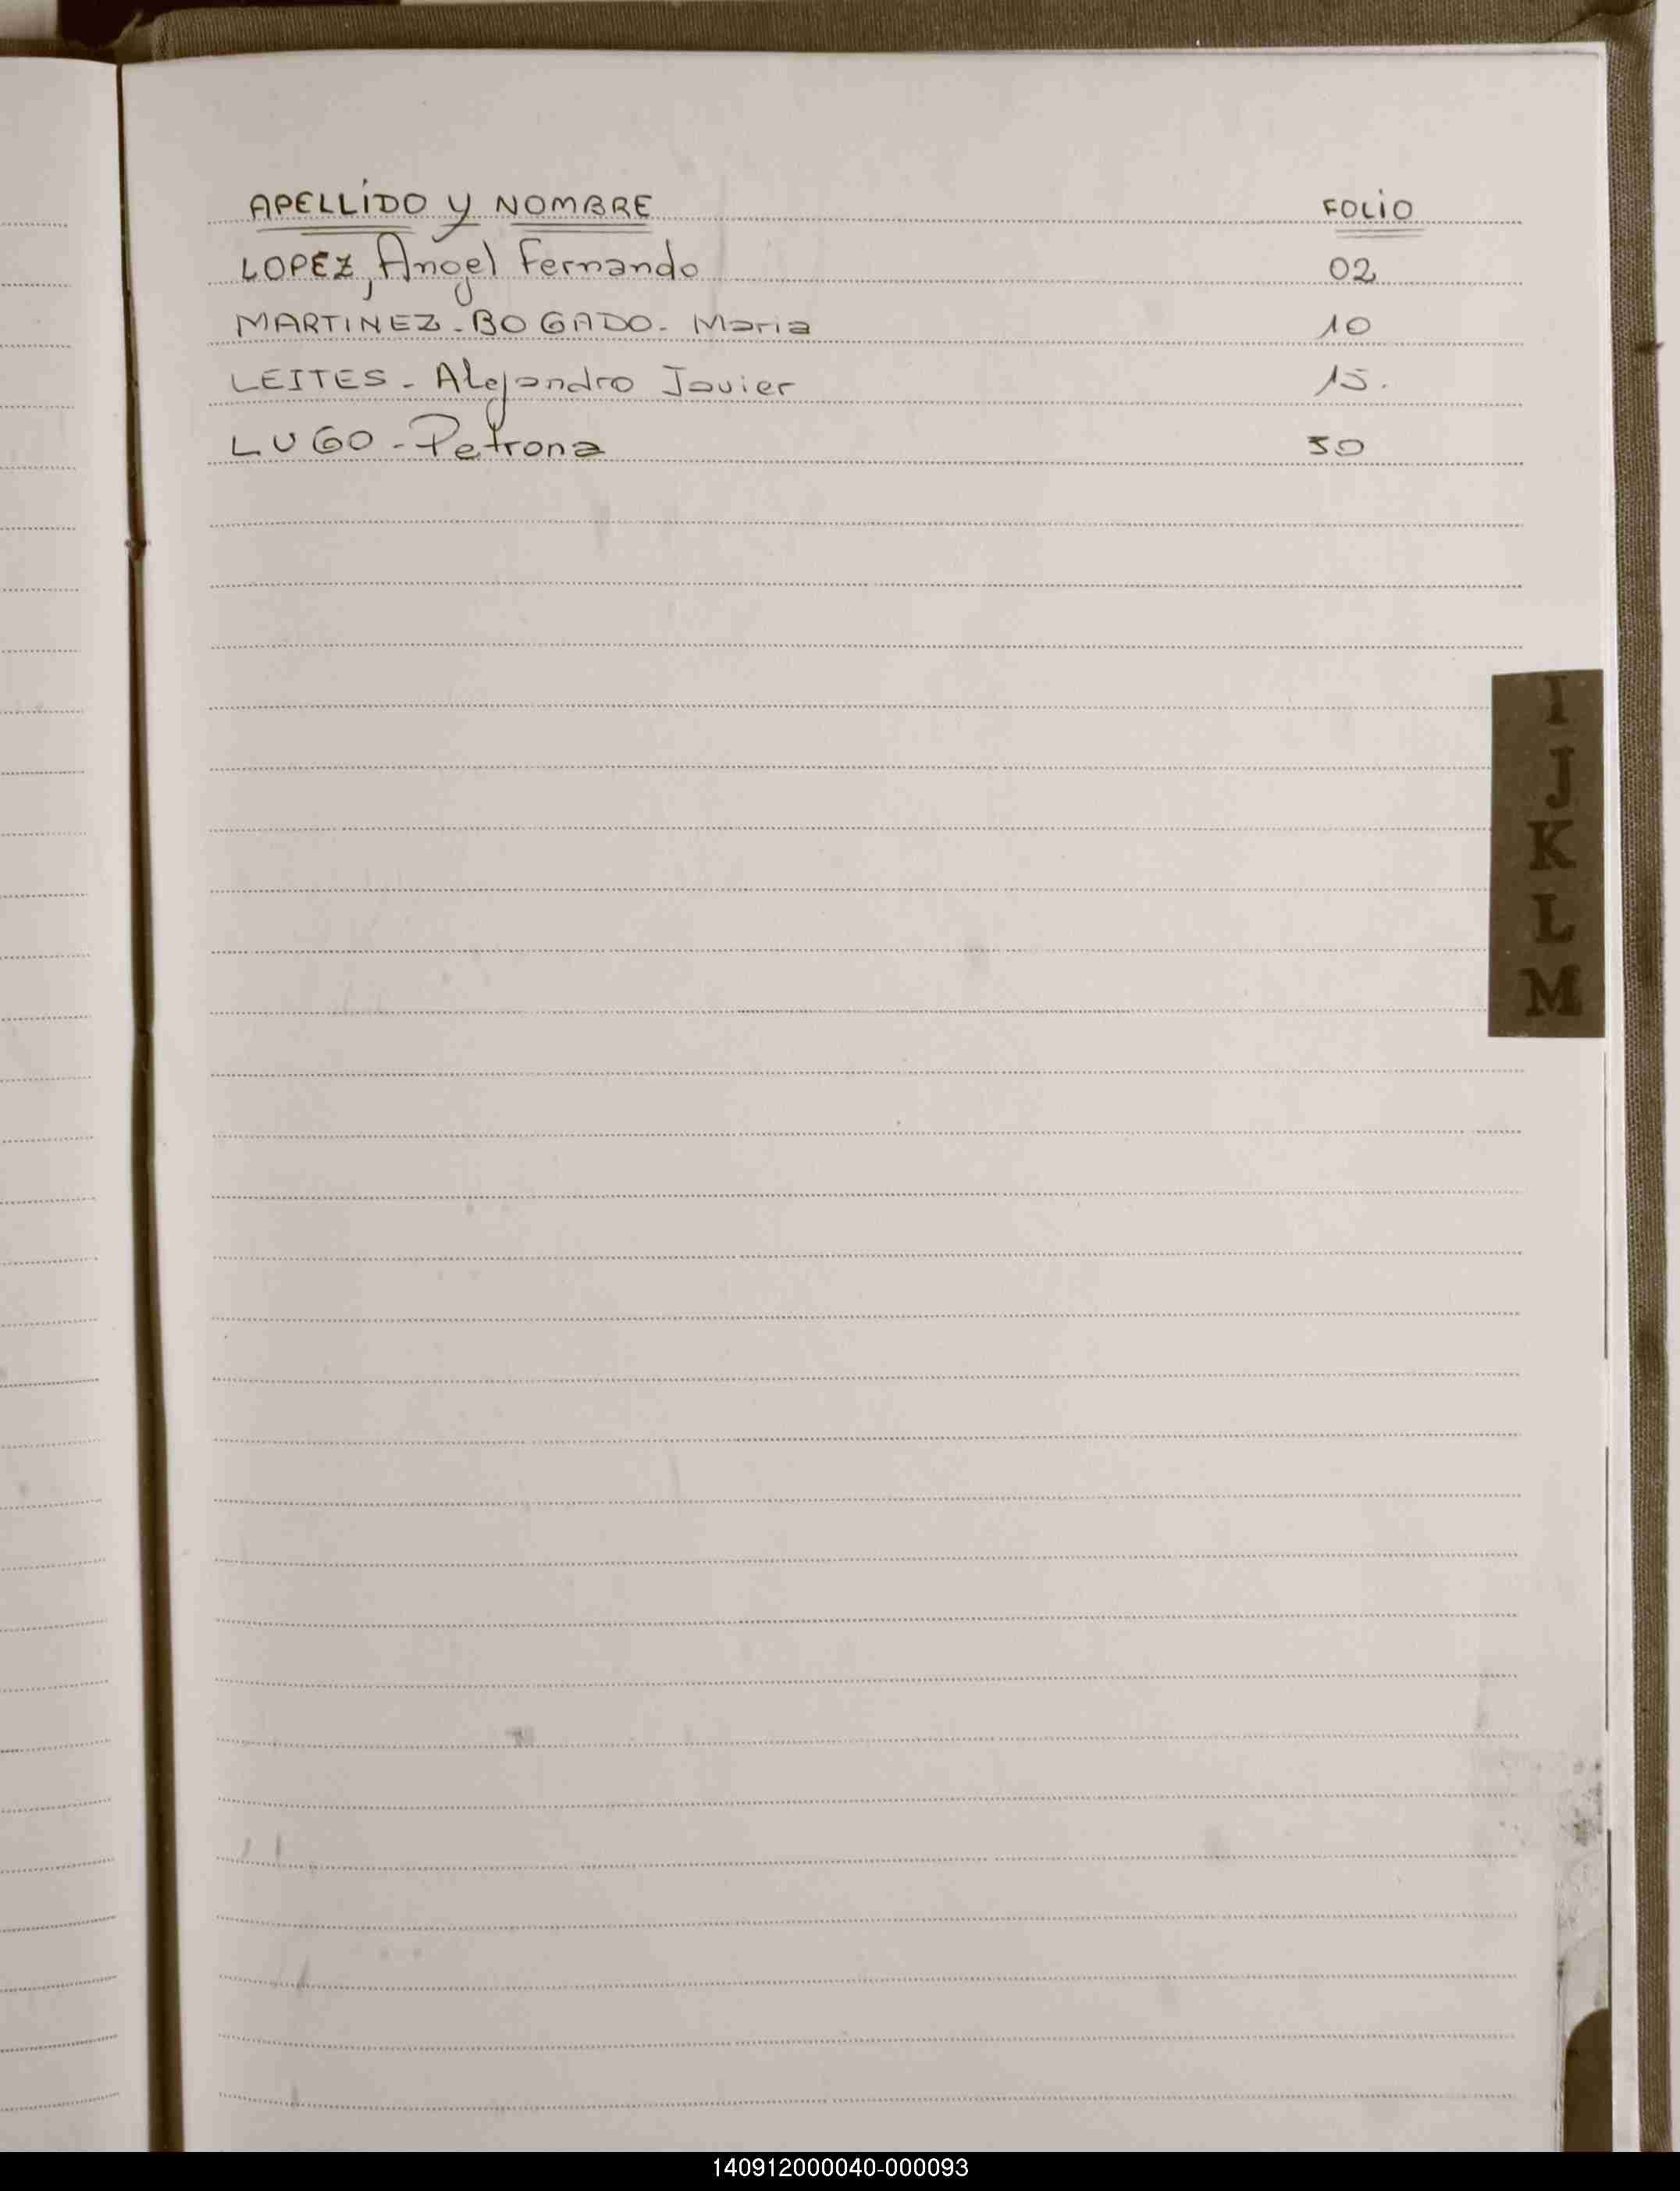 APELLIDO Y NOMBRE FOLIO
LOPEZ, Angel Fernando 02
MARTINEZ - BOGADO - Maria 10
LEITES - Alejandro Javier 15.
LUGO - Petrona 30
I
J
K
L
M
140912000040-000093